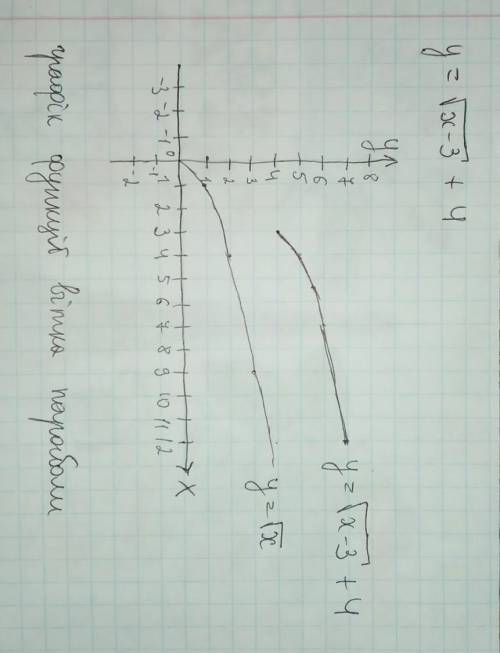 y = √x-3 + 4
y
8
7
6
5
4
3
2
1
-3 -2 -1 0 1 2 3 4 5 6 7 8 9 10 11 12
x
-1
-2
y = √x-3 + 4
y = √x
графік функції вітка параболи